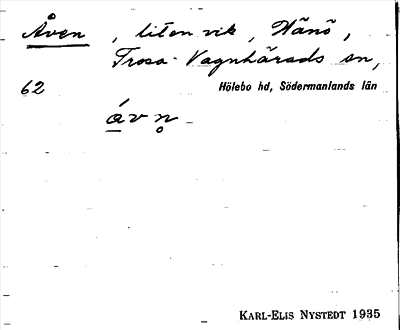 Åven, liten vik, Hånö,
Trosa-Vagnhärads sn,
62 Hölebo hd, Södermanlands län
á v n̥
KARL-ELIS NYSTEDT 1935